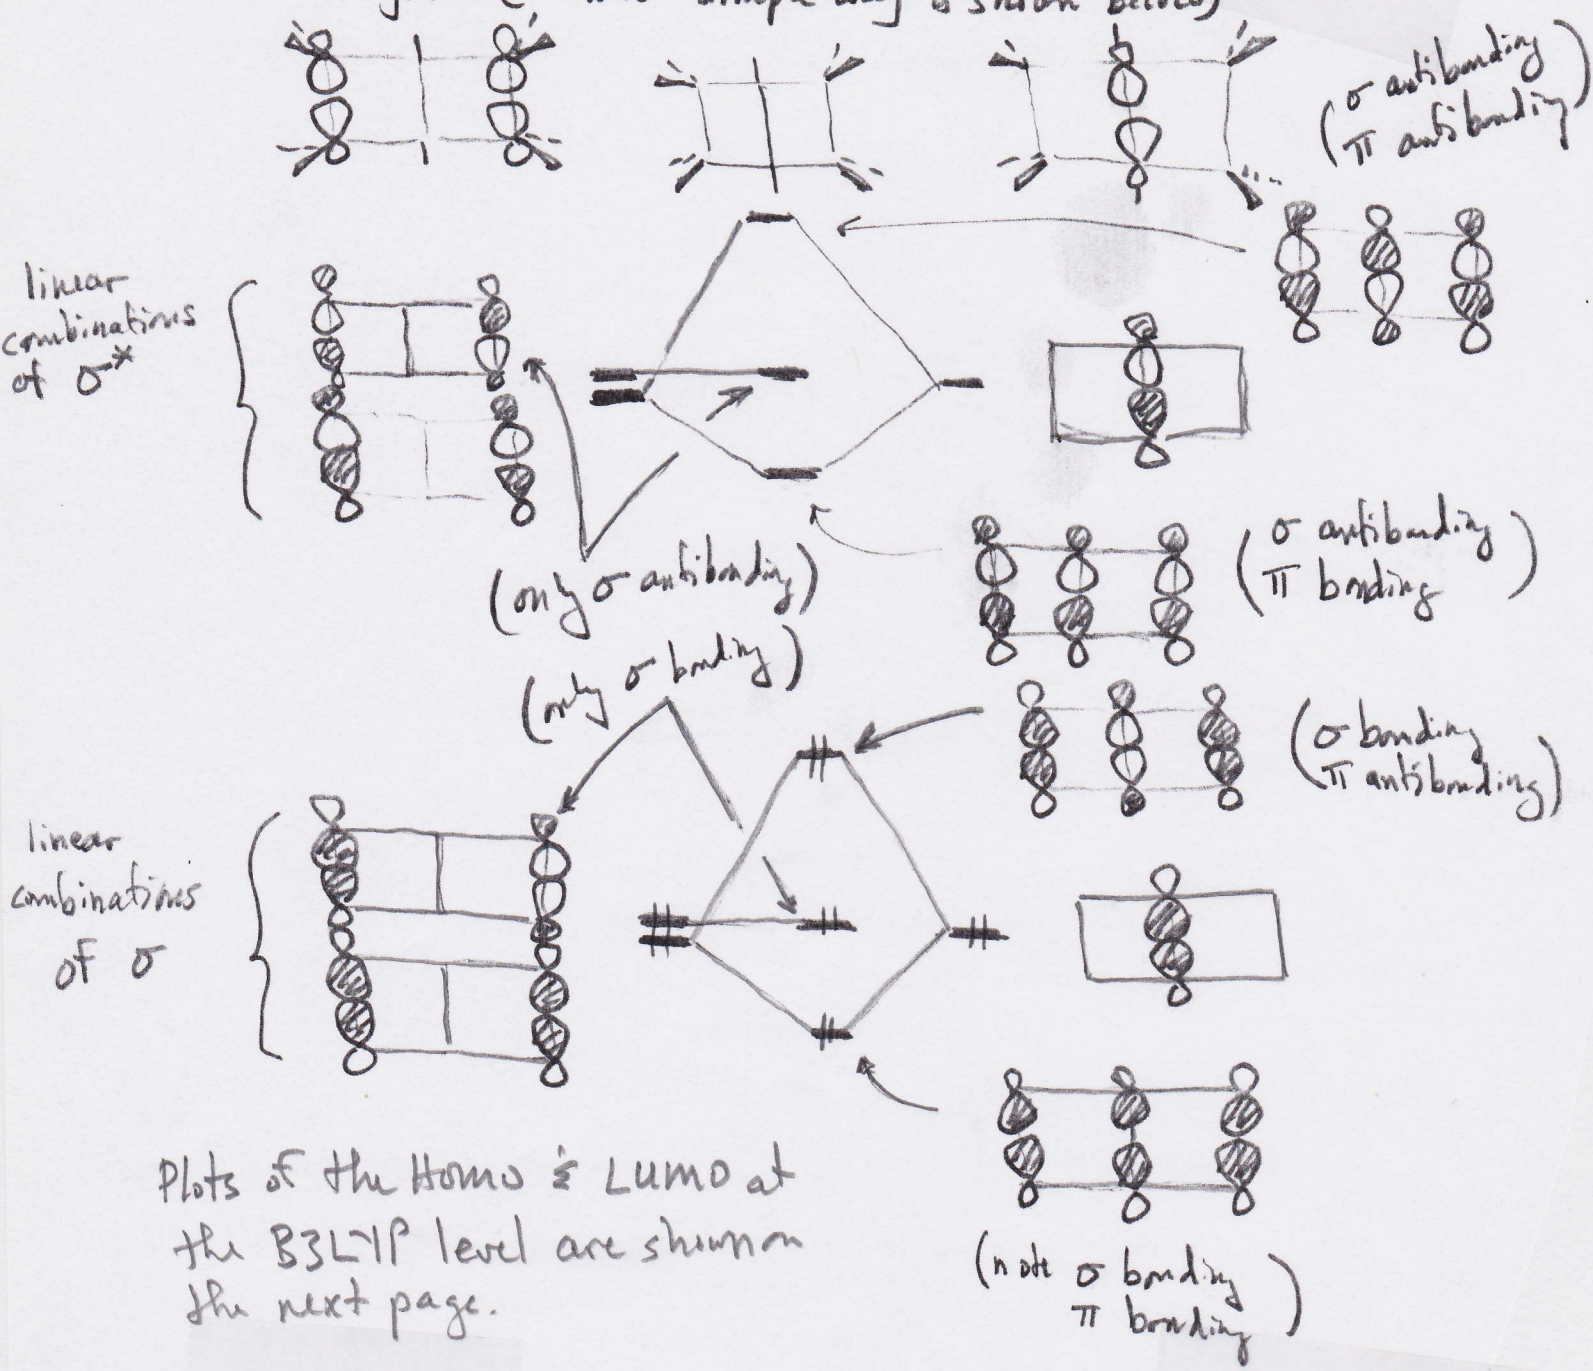 is shown below)
(σ antibonding
π antibonding)
linear
combinations
of σ*
(only σ antibonding)
(σ antibonding
π bonding)
(only σ bonding)
(σ bonding
π antibonding)
linear
combinations
of σ
Plots of the HOMO & LUMO at
the B3LYP level are shown on
the next page.
(note σ bonding
π bonding)